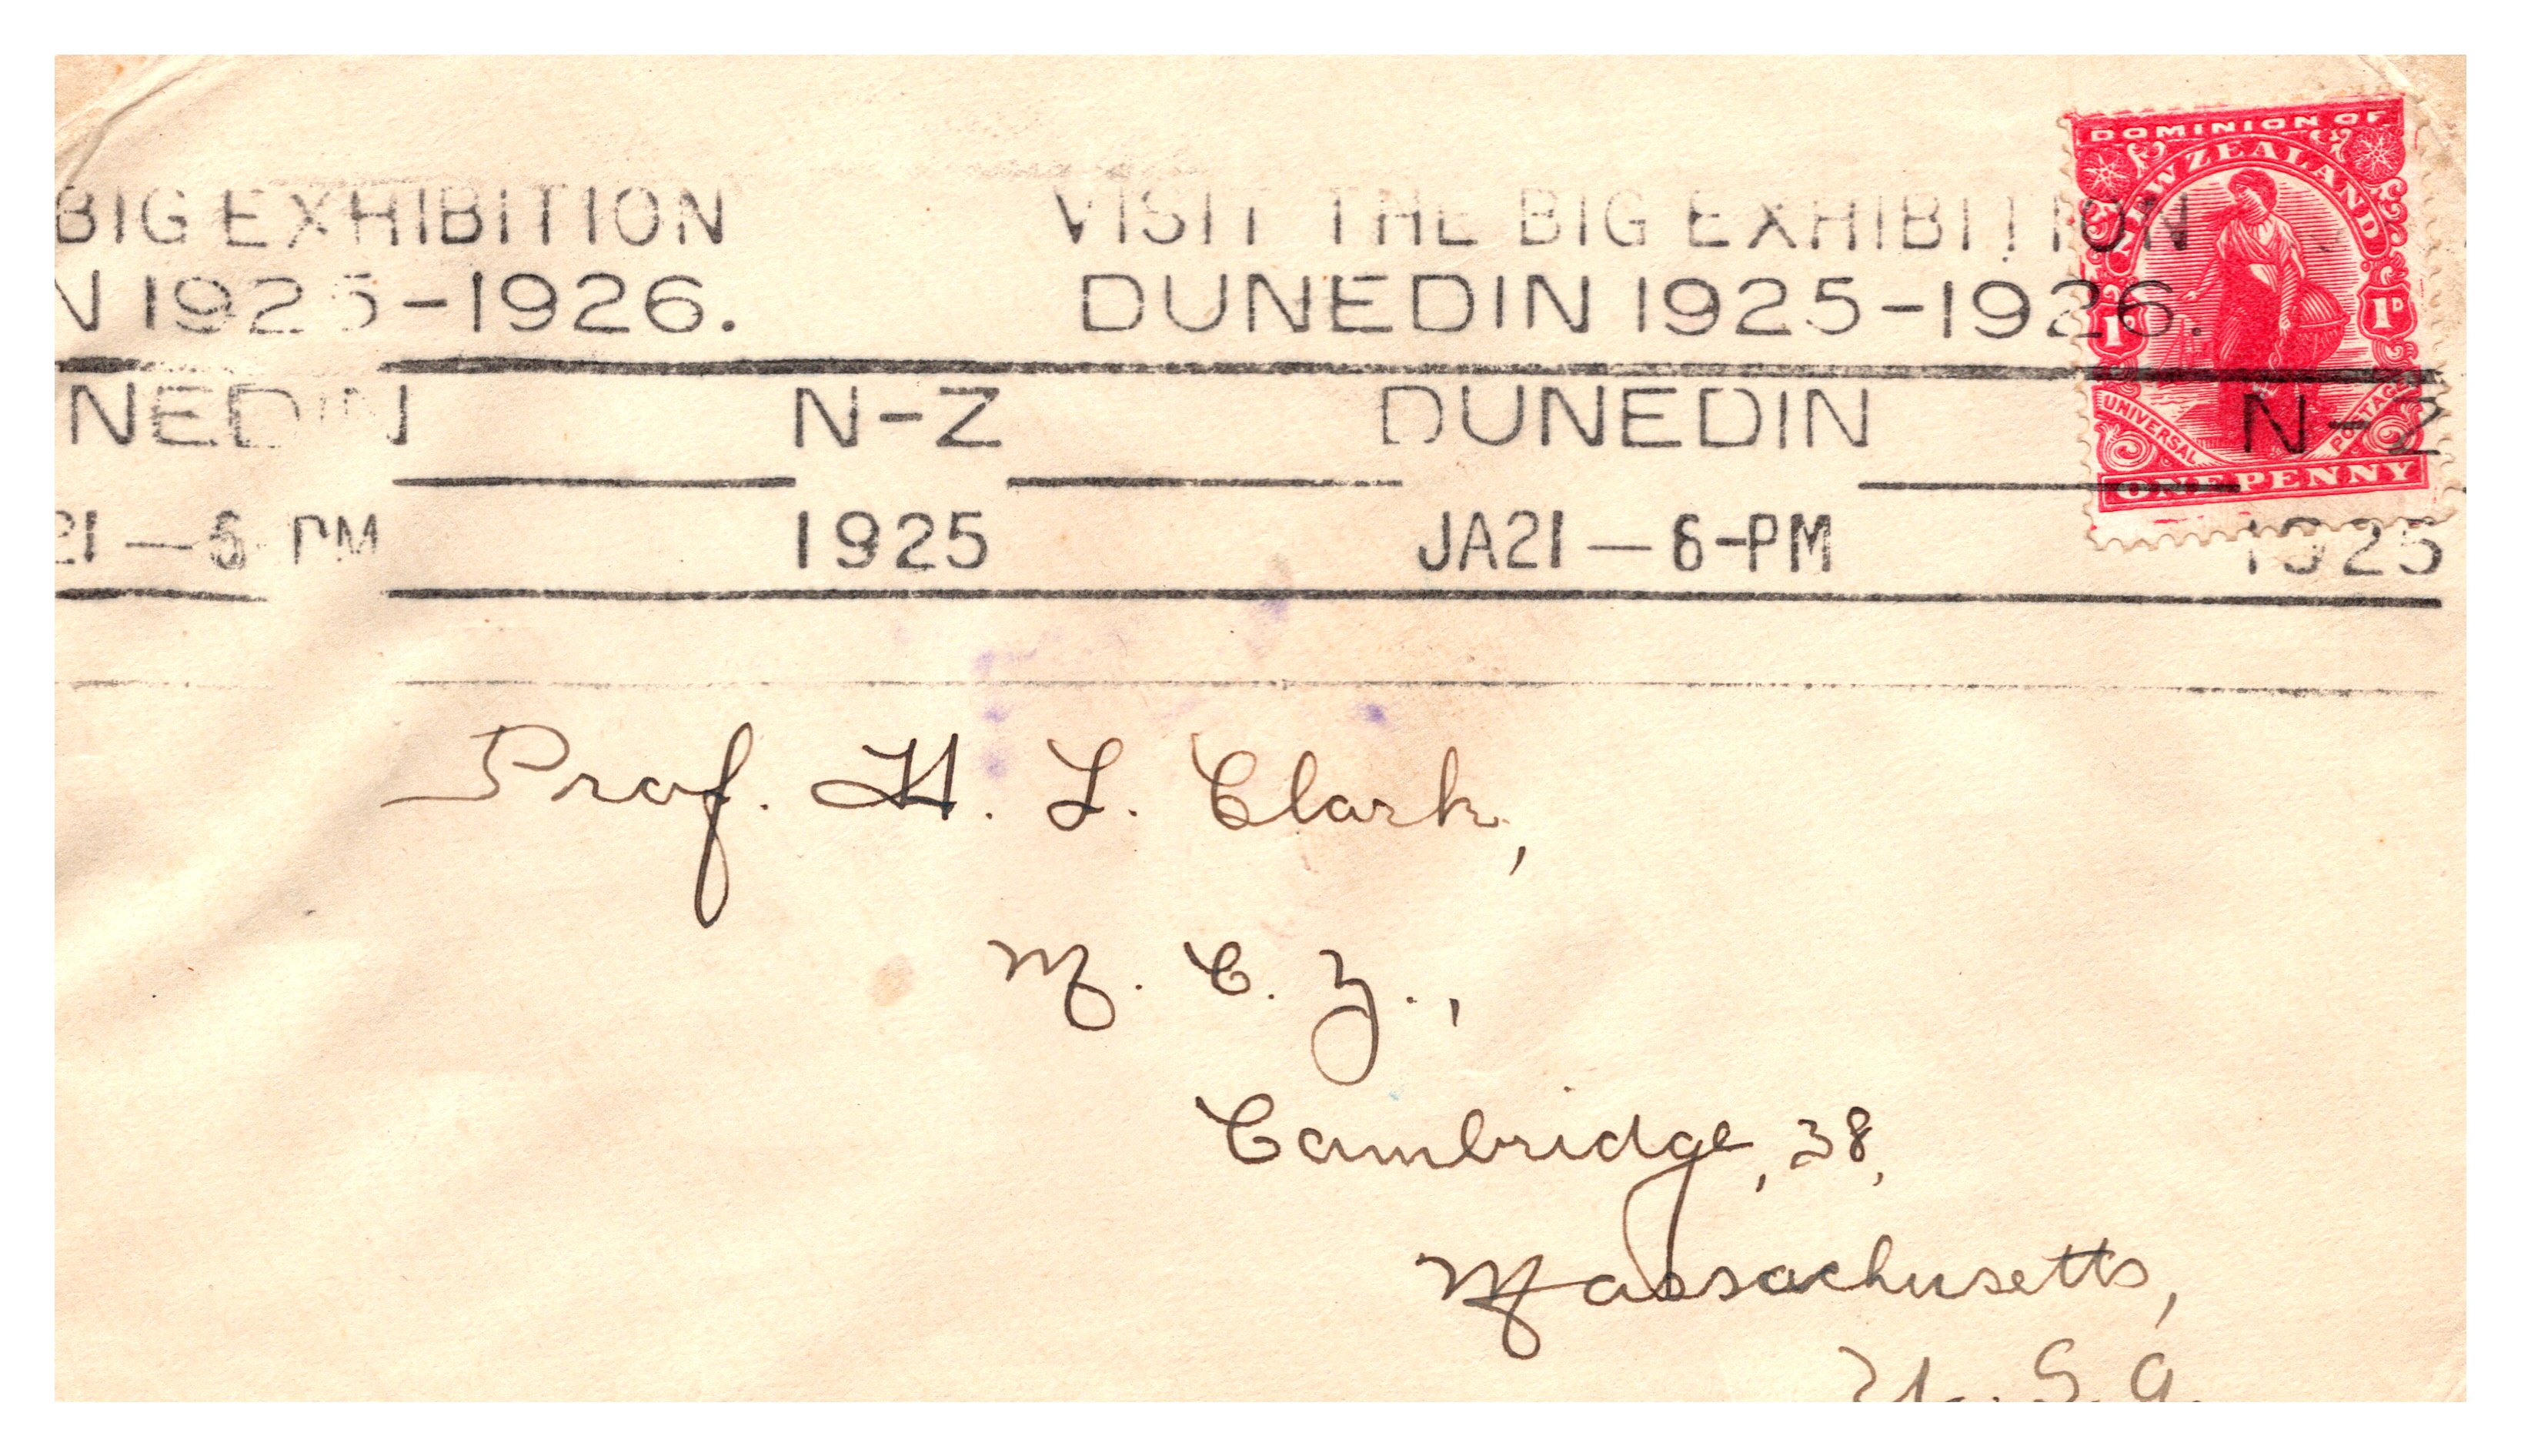 BIG EXHIBITION VISIT THE BIG EXHIBITION
N 1925-1926. DUNEDIN 1925-1926.
NEDIN N-Z DUNEDIN N-Z
21 — 6 PM 1925 JA21 — 6-PM 1925
DOMINION OF
NEW ZEALAND
1D 1D
UNIVERSAL POSTAGE
ONE PENNY
Prof. H. L. Clark,
M. C. Z.,
Cambridge, 38,
Massachusetts,
U. S. A.